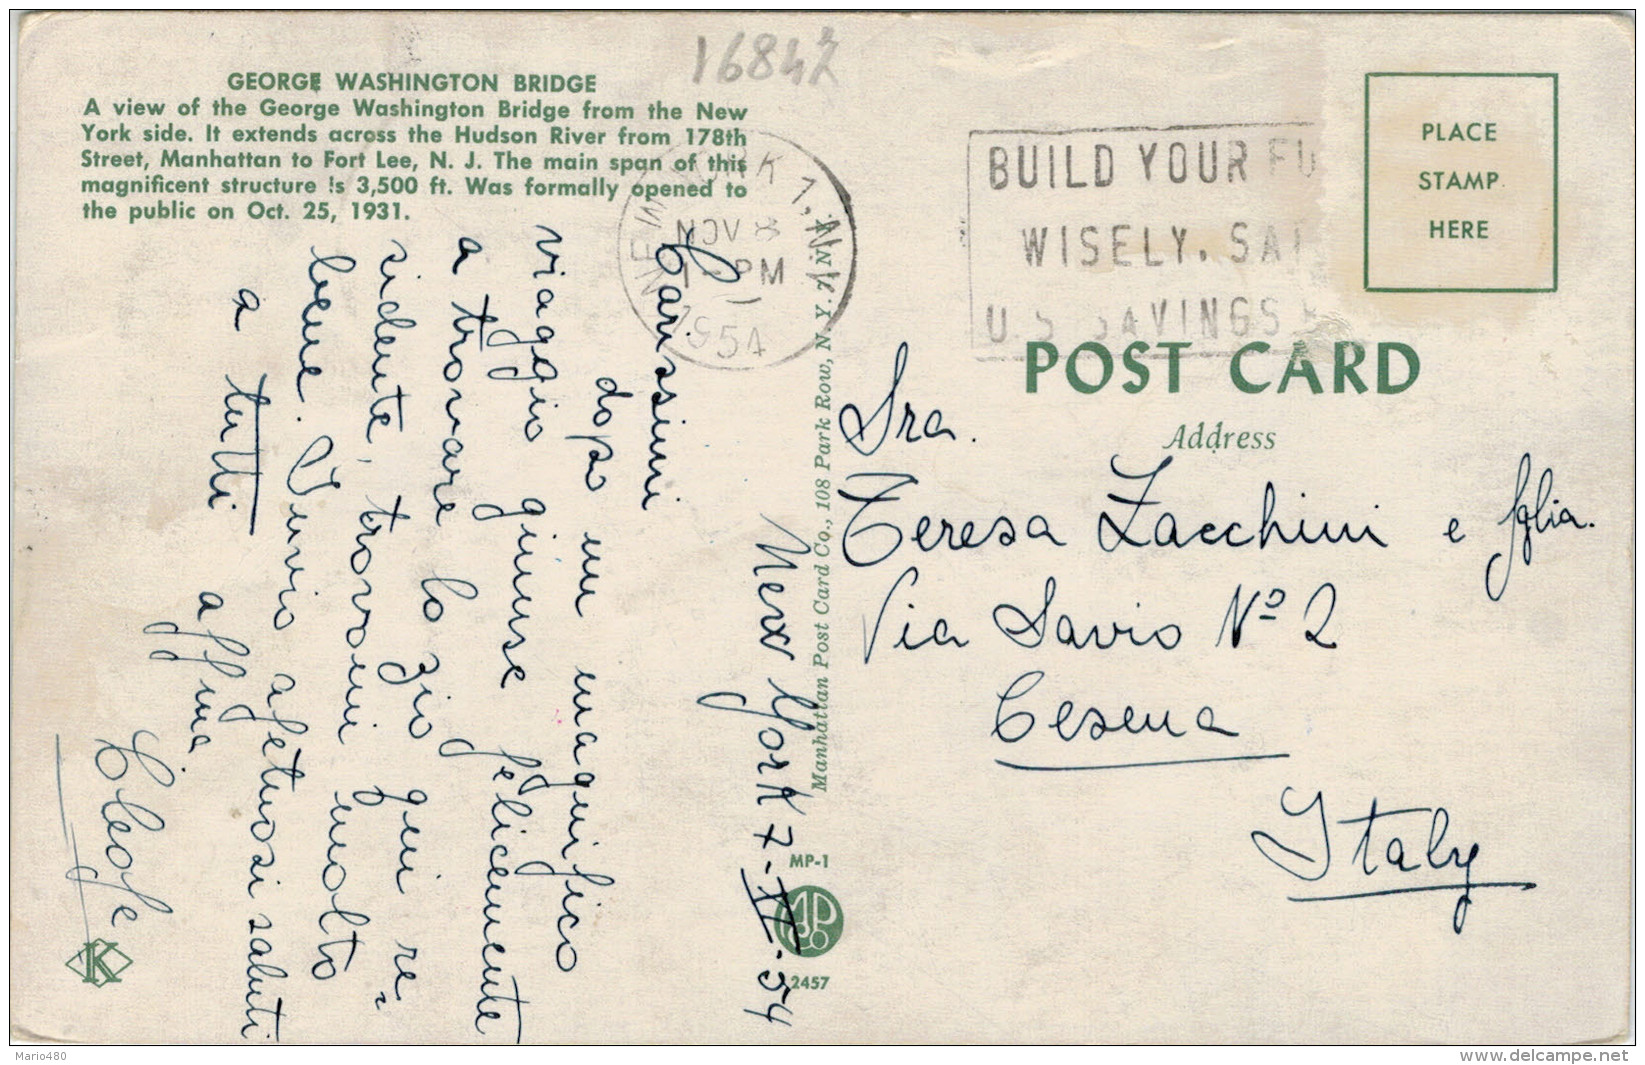 16842
GEORGE WASHINGTON BRIDGE
A view of the George Washington Bridge from the New
York side. It extends across the Hudson River from 178th
Street, Manhattan to Fort Lee, N. J. The main span of this
magnificent structure is 3,500 ft. Was formally opened to
the public on Oct. 25, 1931.
NEW YORK 1, N.Y.
NOV 8
PM
1954
BUILD YOUR FU
WISELY. SA
U.S SAVINGS
PLACE
STAMP
HERE
POST CARD
Address
New York 7-XI-54
Carissimi
dopo un magnifico
viaggio giunse felicemente
a trovare lo zio qui re-
sidente, trovomi molto
bene. Invio afetuosi saluti
a tutti
affma
Cleofe
Manhattan Post Card Co., 108 Park Row, N. Y. 7, N.Y.
MP-1
MPCo
2457
K
Sra.
Teresa Zacchini e figlia.
Via Savio Nº 2
Cesena
Italy
Mario480
www.delcampe.net